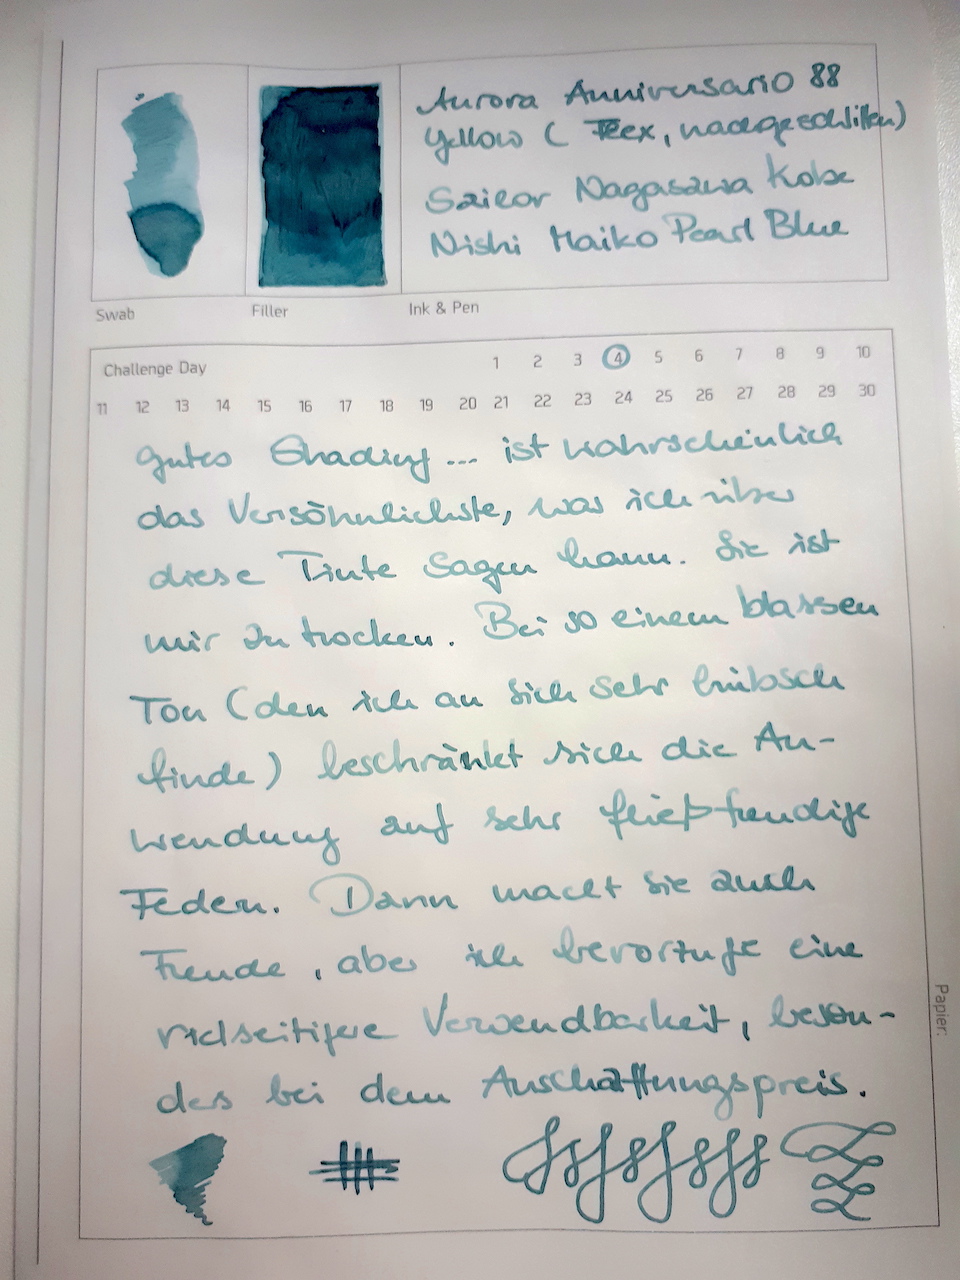 Aurora Anniversario 88
Yellow ( Flex, nachgeschliffen)
Sailor Nagasawa Kobe
Nishi Maiko Pearl Blue
Swab
Filler
Ink & Pen
Challenge Day
1 2 3 4 5 6 7 8 9 10
11 12 13 14 15 16 17 18 19 20 21 22 23 24 25 26 27 28 29 30
gutes Shading... ist wahrscheinlich
das Versöhnlichste, was ich über
diese Tinte sagen kann. Sie ist
mir zu trocken. Bei so einem blassen
Ton (den ich an sich sehr hübsch
finde) beschränkt sich die An-
wendung auf sehr fließfreudige
Federn. Dann macht sie auch
Freude, aber ich bevorzuge eine
vielseitigere Verwendbarkeit, beson-
ders bei dem Anschaffungspreis.
Papier: